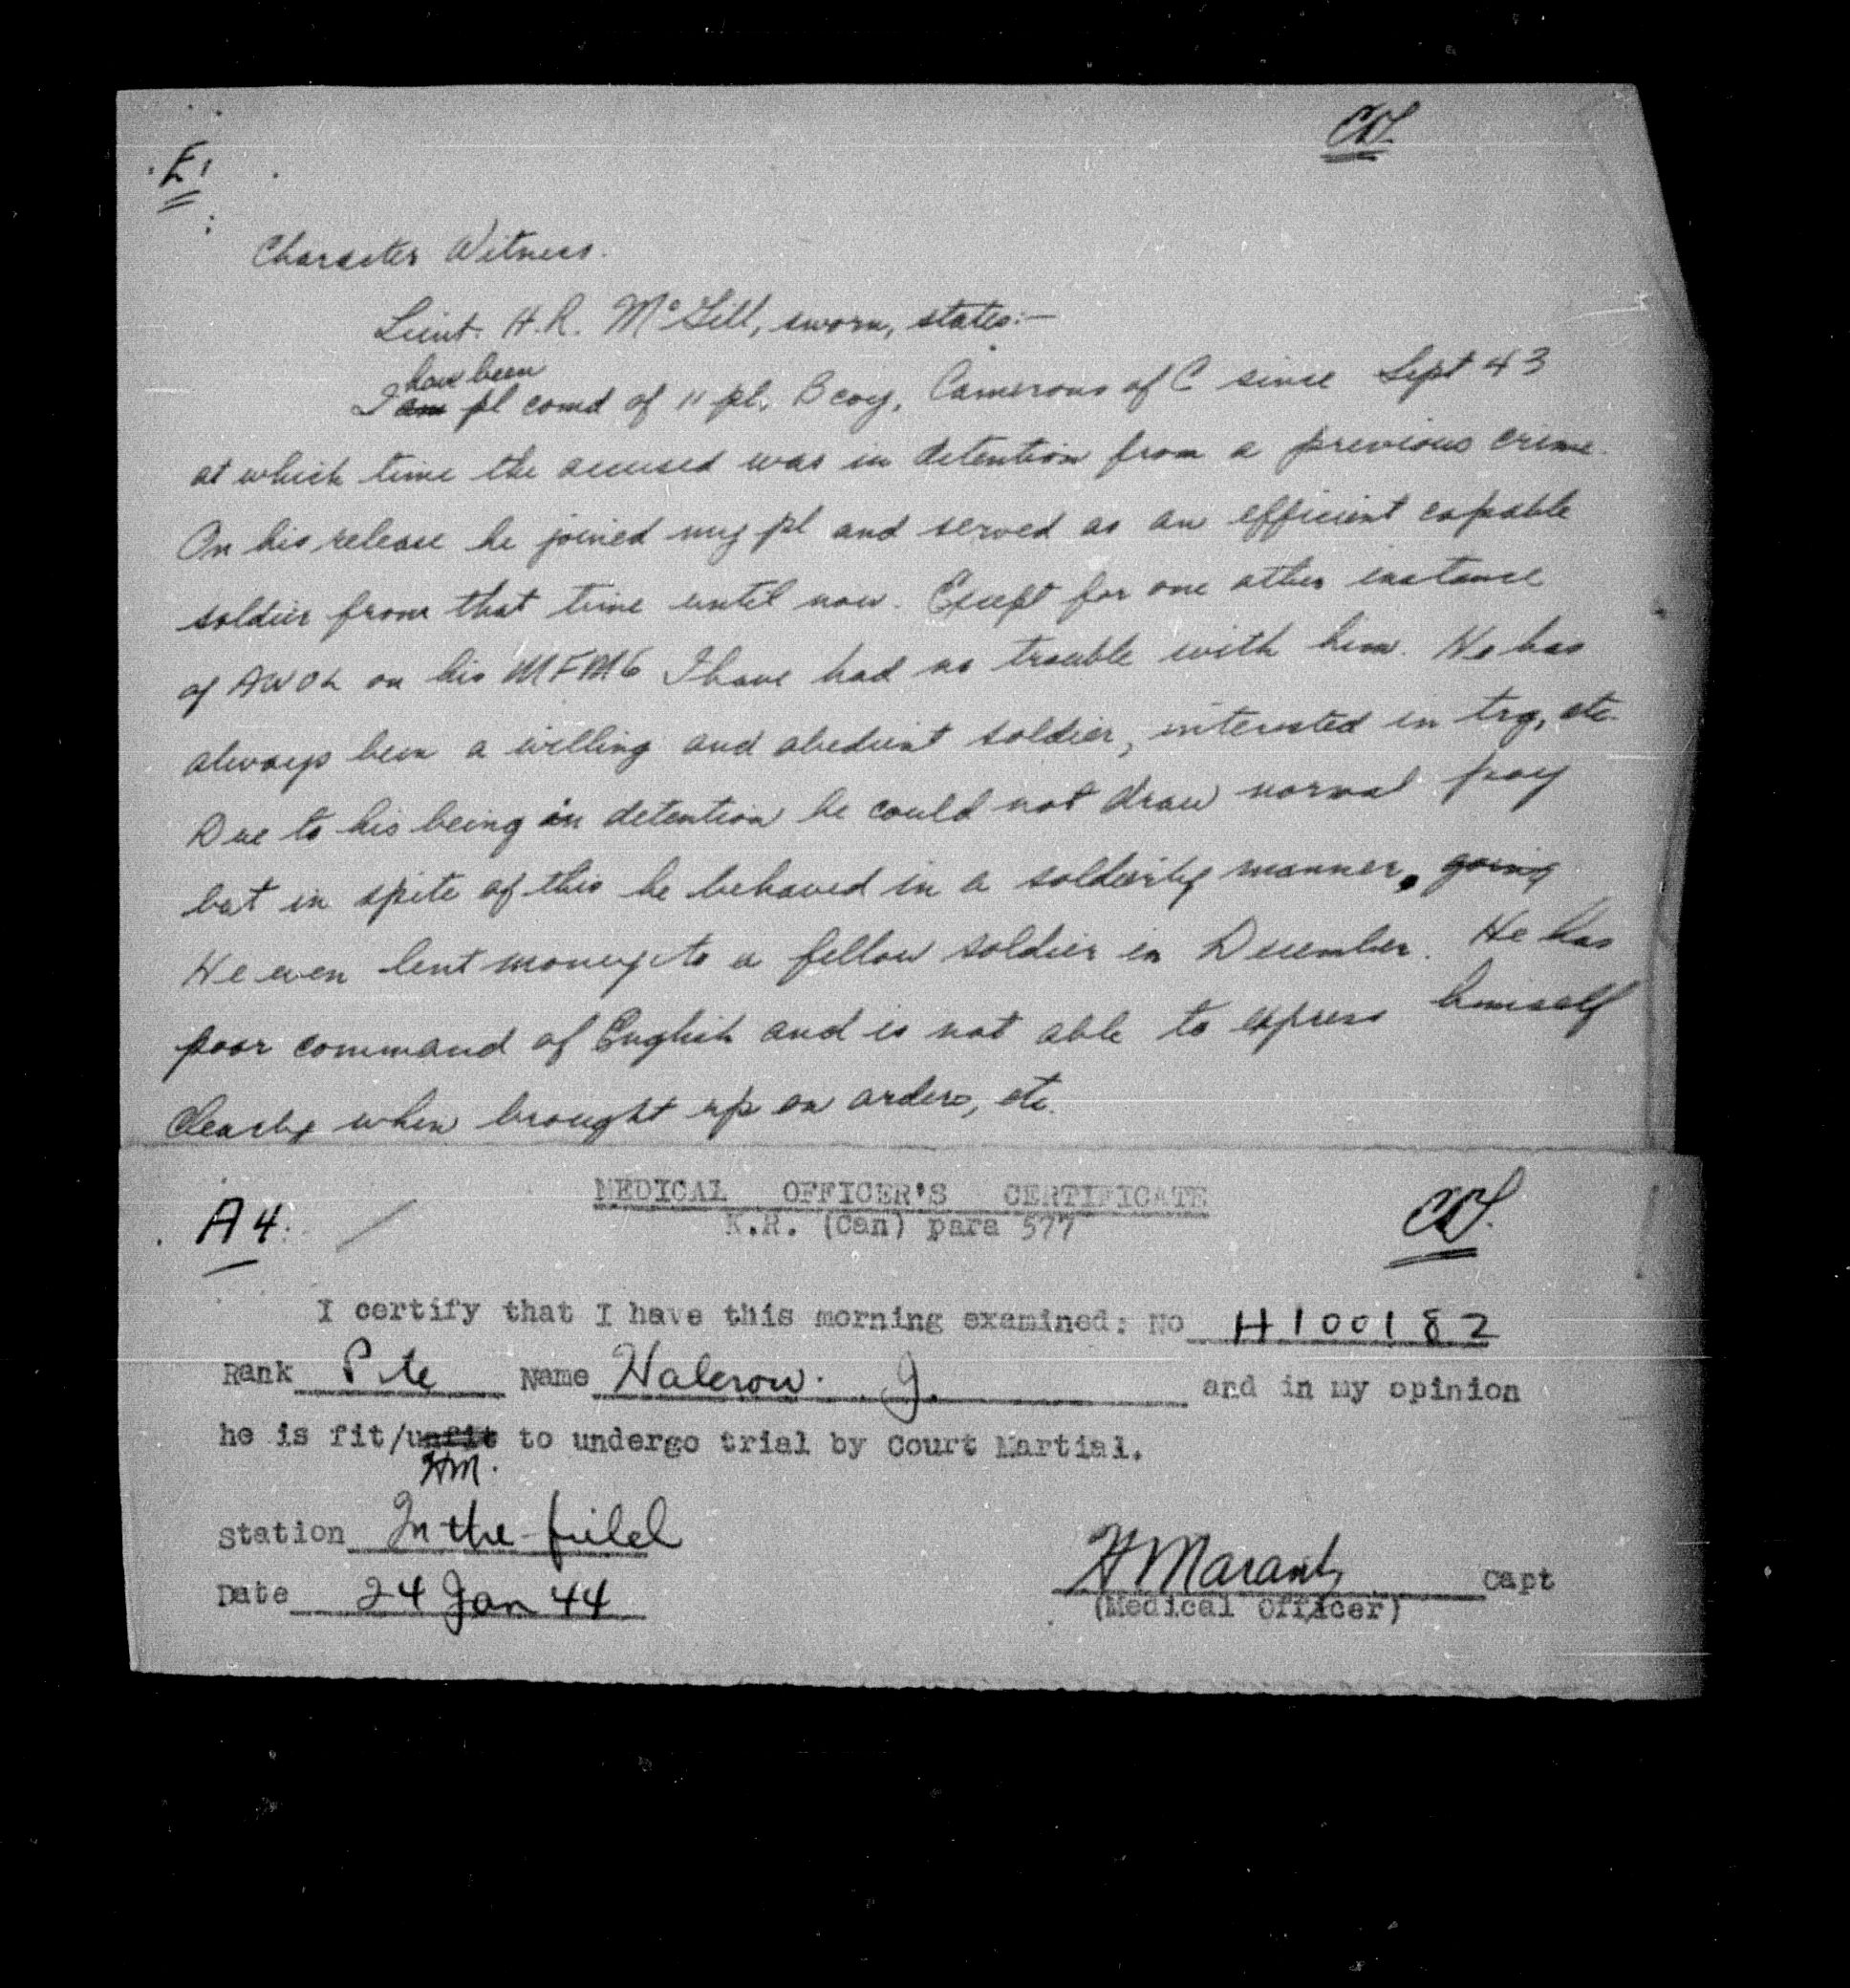 E1
Character Witness.
Lieut. H.R. McGill, sworn, states:—
have been
I am pl comd of 11 pl, B coy, Camerons of C since Sept 43
at which time the accused was in detention from a previous crime.
On his release he joined my pl and served as an efficient capable
soldier from that time until now. Except for one other instance
of AWOL on his MFM6 I have had no trouble with him. He has
always been a willing and obedient soldier, interested in trg, etc.
Due to his being in detention he could not draw normal pay
but in spite of this he behaved in a soldierly manner. going
He even lent money to a fellow soldier in December. He has
poor command of English and is not able to express himself
clearly when brought up on orders, etc.
MEDICAL OFFICER'S CERTIFICATE
A4.
K.R. (Can) para 577
I certify that I have this morning examined: No H100182
Rank Pte Name Halcrow. J. and in my opinion
he is fit/unfit to undergo trial by Court Martial.
HM.
Station In-the-field
Date 24 Jan 44
H Marantz Capt
(Medical Officer)